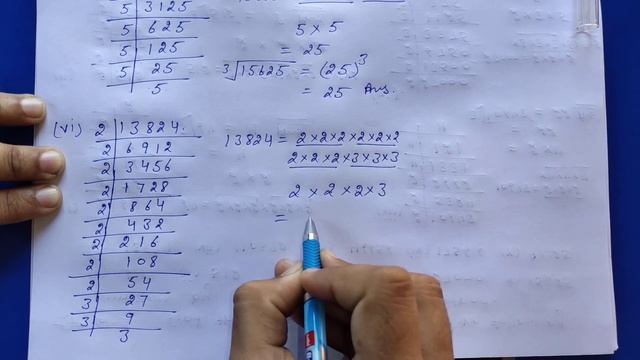 5 | 3125
5 | 625
5 | 125
5 | 25
5
5 × 5
= 25
3√15625 = (25)3
= 25 Ans.
(vi) 2 | 13824.
2 | 6912
2 | 3456
2 | 1728
2 | 864
2 | 432
2 | 216
2 | 108
2 | 54
3 | 27
3 | 9
3
13824 = 2×2×2×2×2×2
2×2×2×3×3×3
2 × 2 × 2×3
=